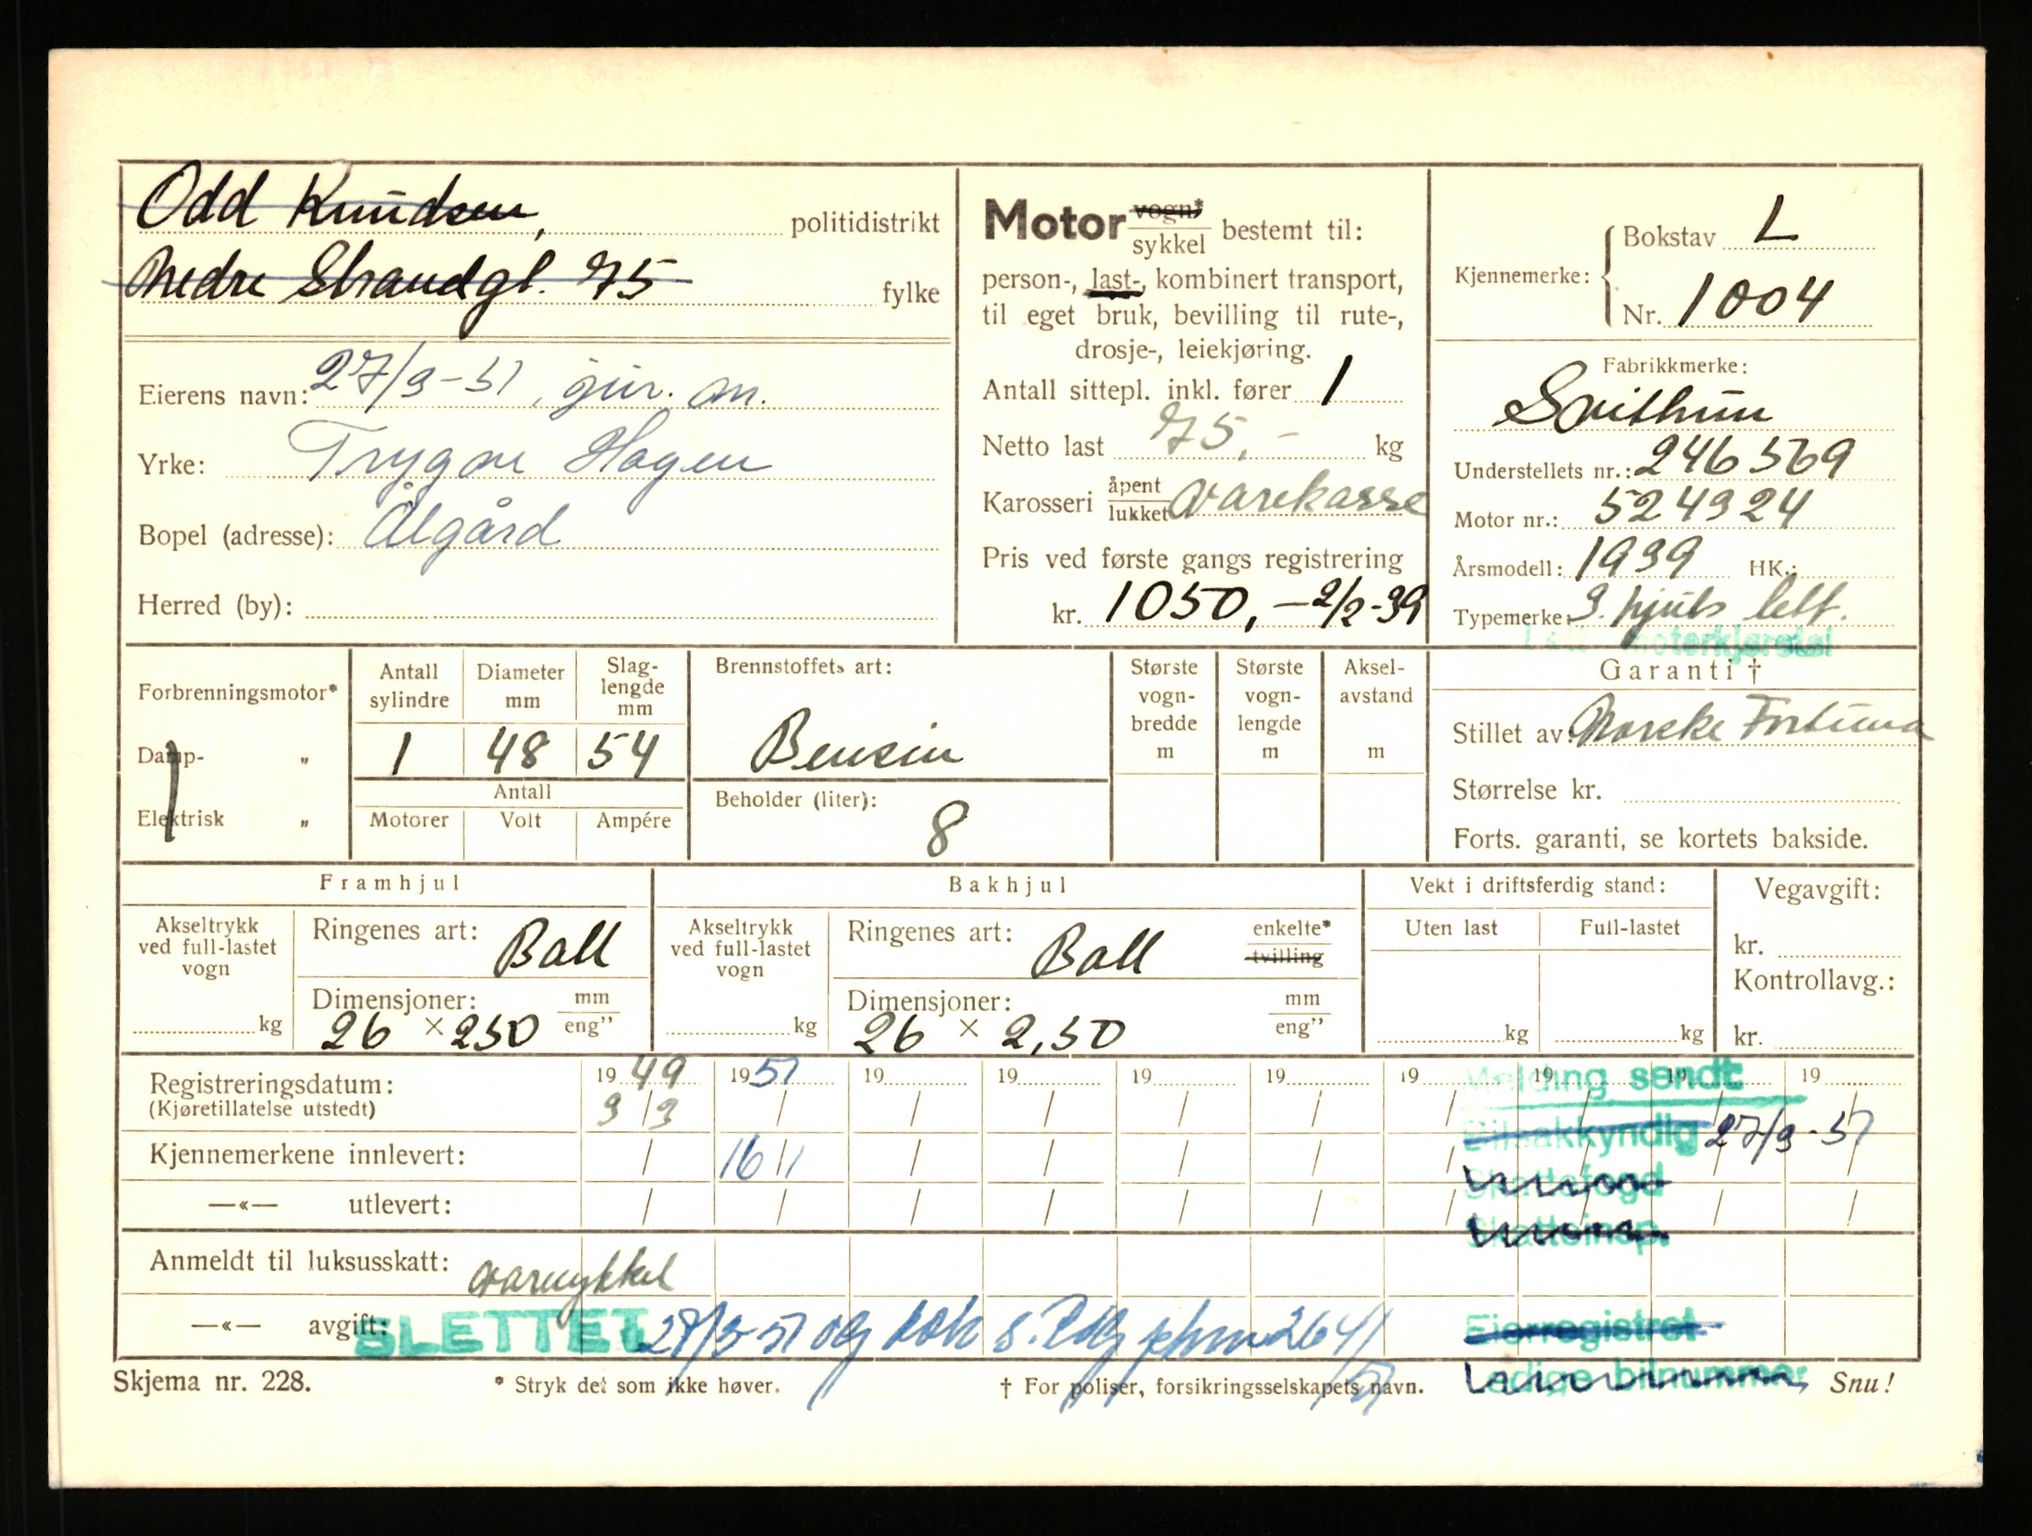 Odd Knudsen, politidistrikt
Nedre Strandgt. 75 fylke
Eierens navn: 27/3-51, jnr. an.
Yrke: Trygve Hagen
Bopel (adresse): Ålgård
Herred (by):
Motor vogn* sykkel bestemt til:
person-, last-, kombinert transport,
til eget bruk, bevilling til rute-,
drosje-, leiekjøring.
Antall sittepl. inkl. fører 1
Netto last 75,- kg
Karosseri åpent lukket varekasse
Pris ved første gangs registrering
kr. 1050,- 2/2-39
Kjennemerke: Bokstav L
Nr. 1004
Fabrikkmerke:
Svithun
Understellets nr.: 246569
Motor nr.: 524924
Årsmodell: 1939 HK.:
Typemerke: 3. hjuls lett.
Lett motorkjøretøi
Forbrenningsmotor*
Damp- „
Elektrisk „
Antall sylindre Diameter mm Slag-lengde mm
1 48 54
Antall
Motorer Volt Ampére
Brennstoffets art:
Bensin
Beholder (liter):
8
Største vogn-bredde m
Største vogn-lengde m
Aksel-avstand m
Garanti †
Stillet av: Norske Fortuna
Størrelse kr.
Forts. garanti, se kortets bakside.
Framhjul
Akseltrykk ved full-lastet vogn kg
Ringenes art: Ball
Dimensjoner: mm eng”
26 × 250
Bakhjul
Akseltrykk ved full-lastet vogn kg
Ringenes art: Ball enkelte* tvilling
Dimensjoner: mm eng”
26 × 2,50
Vekt i driftsferdig stand:
Uten last Full-lastet
kg kg
Vegavgift:
kr.
Kontrollavg.:
kr.
Registreringsdatum: 1949 1951 19 19 19 19 19 19 19 19
(Kjøretillatelse utstedt) 3/3 / / / / / / / / /
Kjennemerkene innlevert: / 16/1 / / / / / / / /
—«— utlevert: / / / / / / / / / /
Melding sendt
Bilsakkyndig 27/3-51
Skattefogd
Skatteinsp.
Eierregistret
Ledige bilnummer
Anmeldt til luksusskatt: varesykkel
—«— avgift:
SLETTET 27/3-51 og
2641/51
Skjema nr. 228. * Stryk det som ikke høver. † For poliser, forsikringsselskapets navn. Snu!